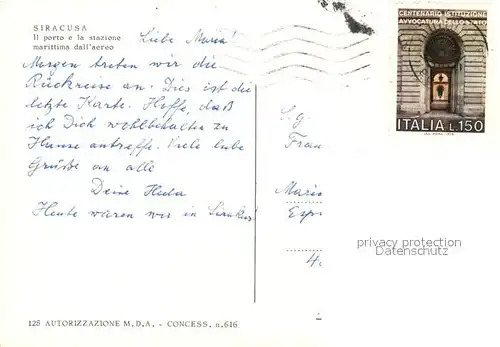 SIRACUSA
Il porto e la stazione
marittima dall'aereo
Liebe Maria!
Morgen treten wir die
Rückreise an. Dies ist die
letzte Karte. Hoffe, daß
ich Dich wohlbehalten zu
Hause antreffe. Viele liebe
Grüße an alle
Deine Heda
Heute waren wir in
CENTENARIO ISTITUZIONE
AVVOCATURA DELLO STATO
ITALIA L.150
S.g.
Fran
Maria
Esp
privacy protection
Datenschutz
128 AUTORIZZAZIONE M.D.A. - CONCESS. n.616